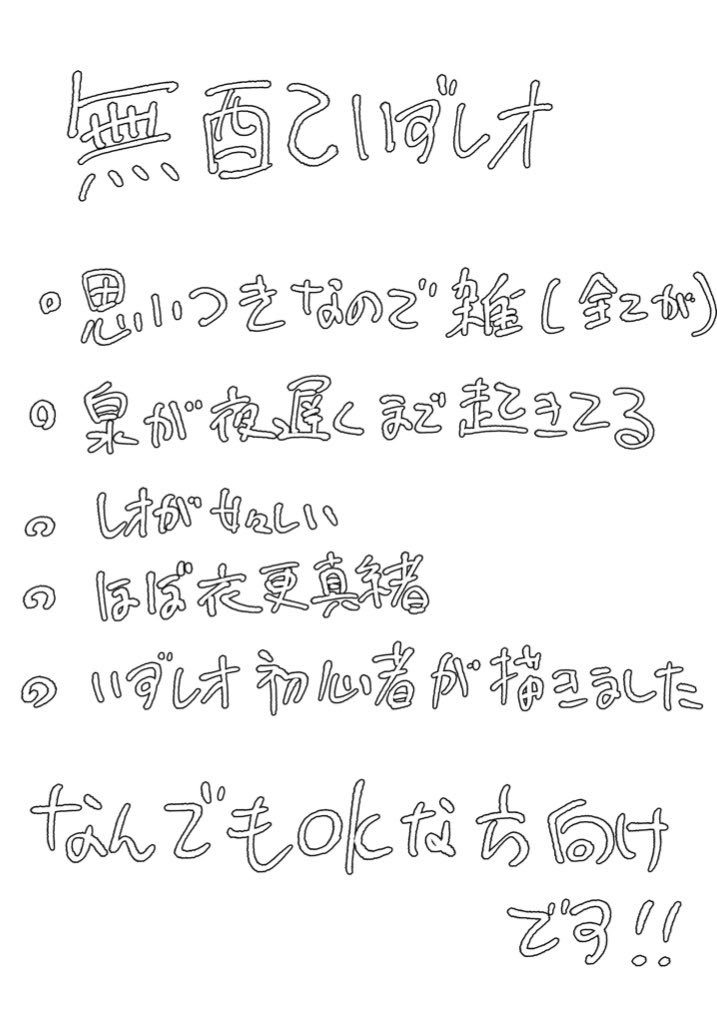 無配といずレオ
・思いつきなので雑(全てが)
・泉が夜遅くまで起きてる
・レオが女々しい
・ほぼ衣更真緒
・いずレオ初心者が描きました
なんでもOKな方向け
です!!